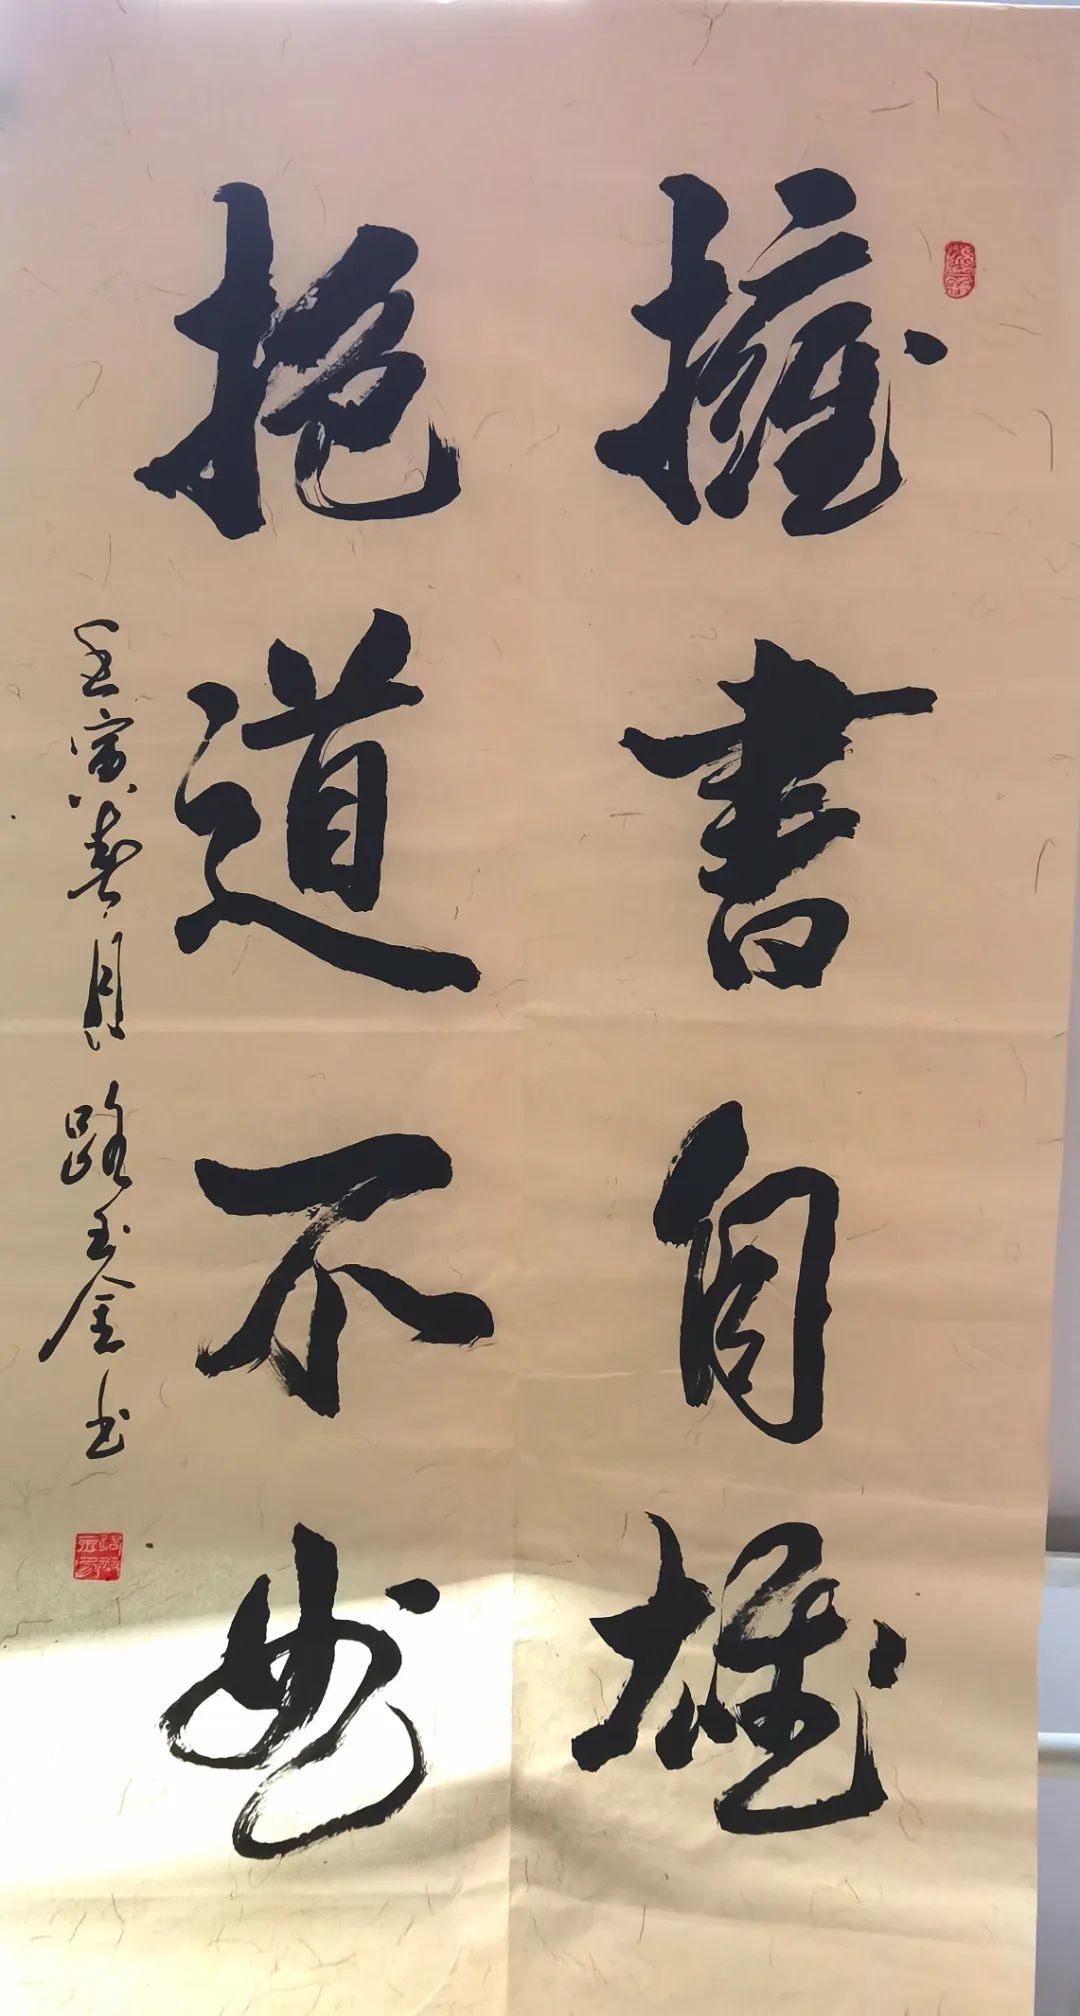 擁書自雄
抱道不曲
壬寅春月路玉金书